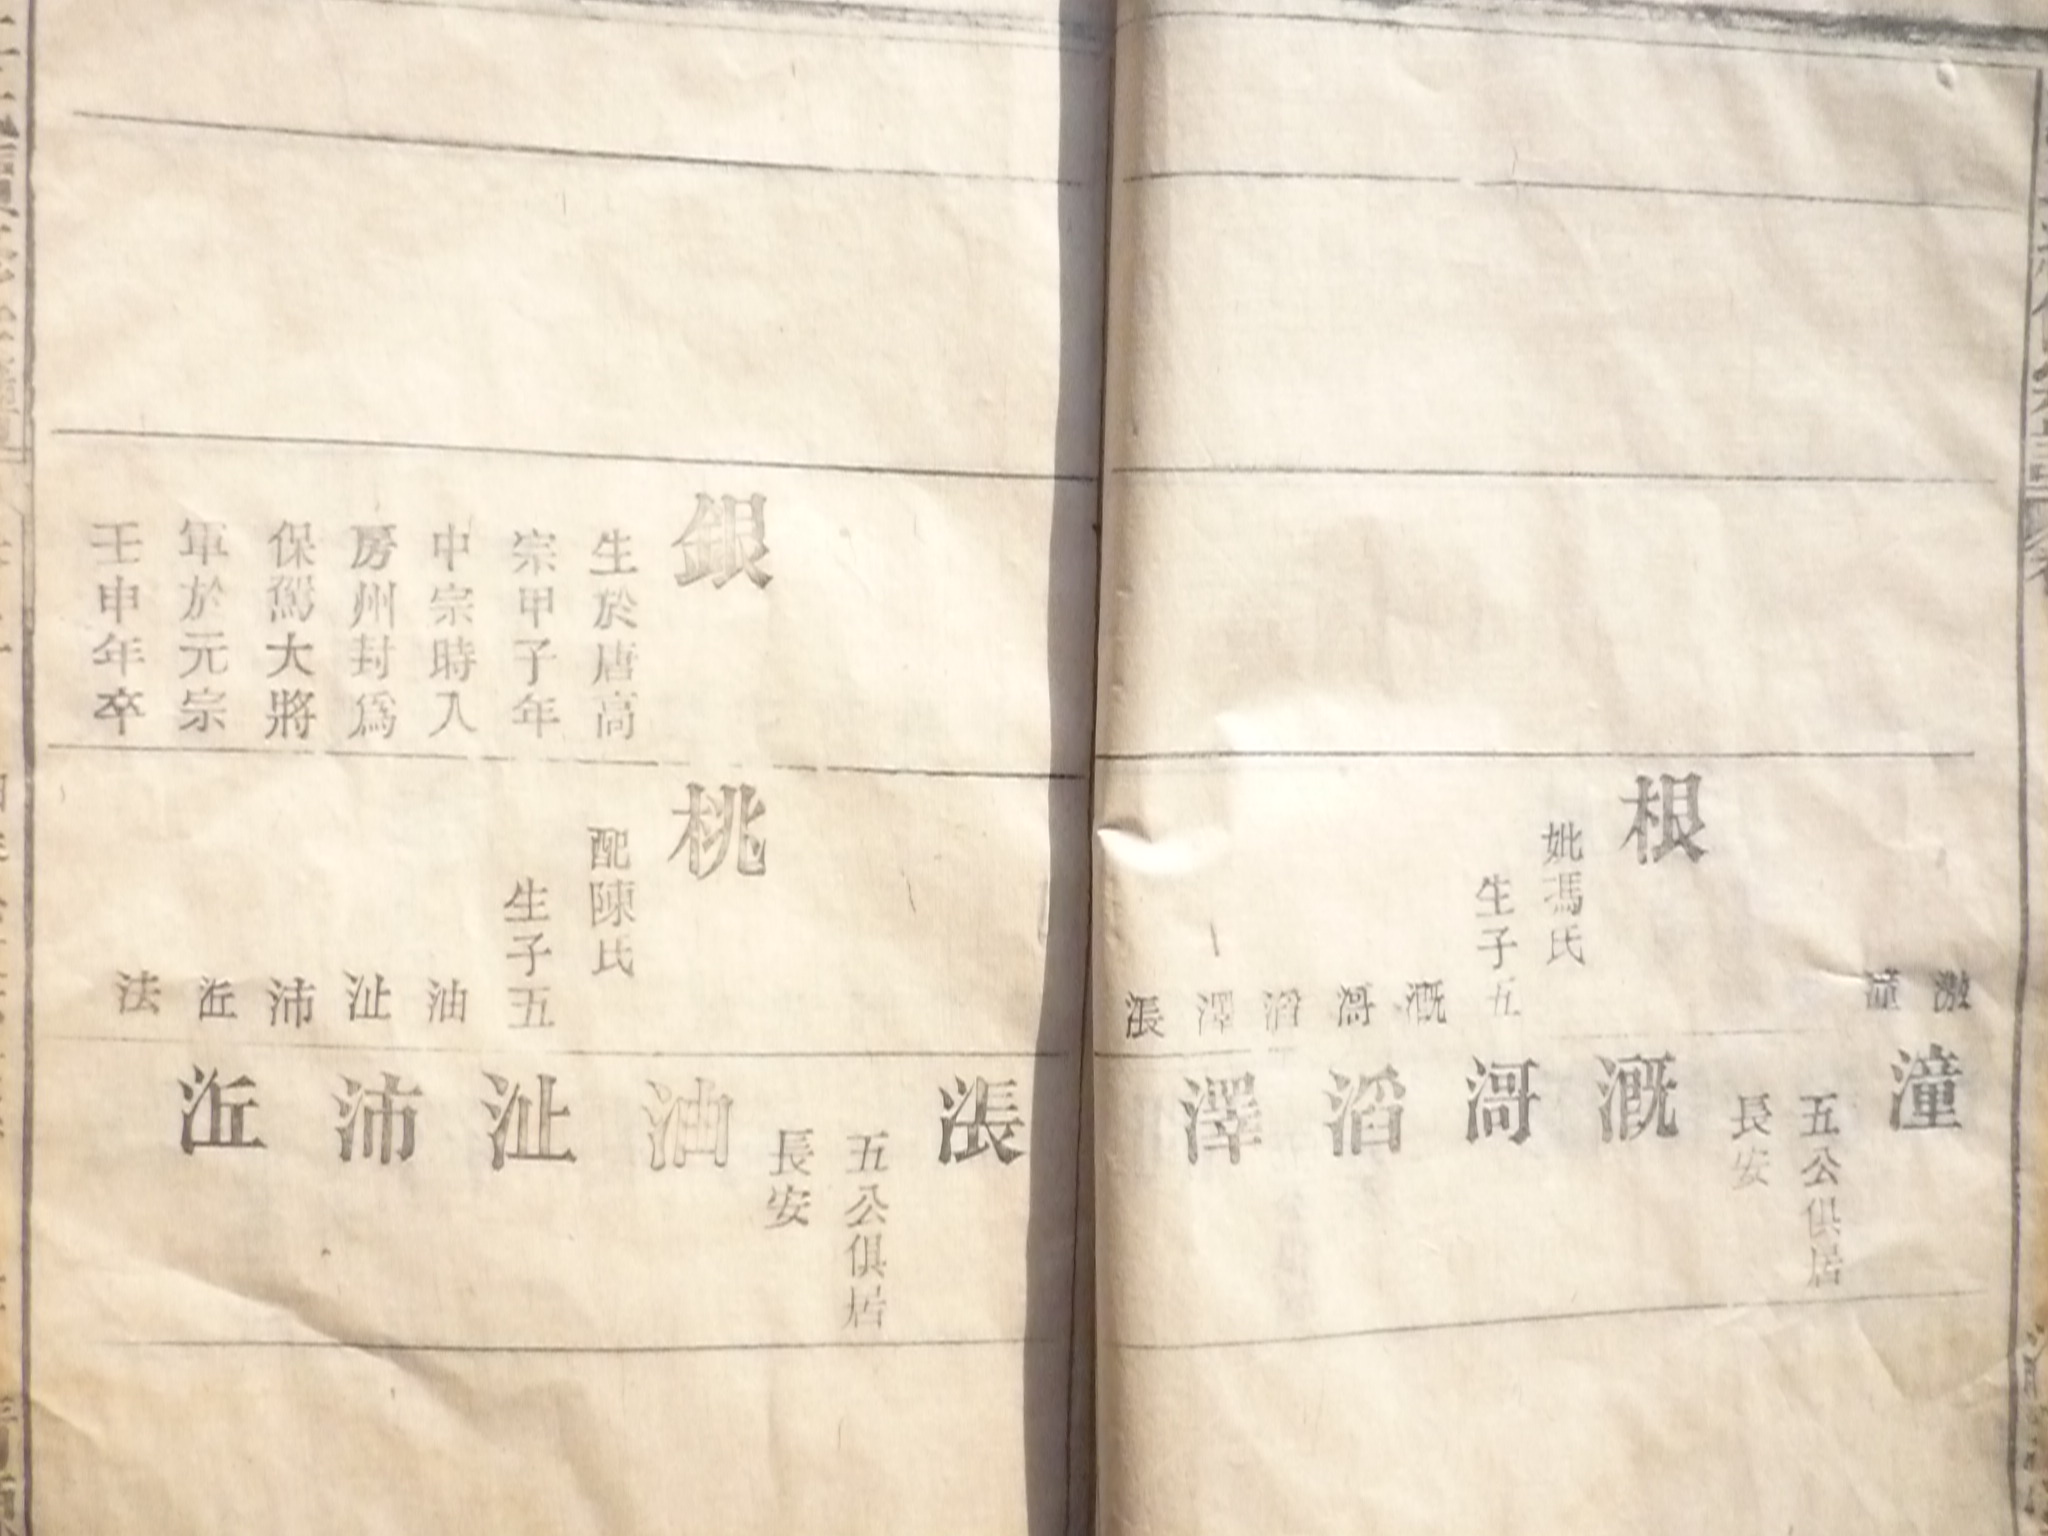 激
潼
根
妣馮氏
生子五
溉
滒
滔
澤
漲
潼
五公俱居
長安
溉
滒
滔
澤
漲
銀
生於唐高
宗甲子年
中宗時入
房州封爲
保駕大將
軍於元宗
壬申年卒
桃
配陳氏
生子五
油
沚
沛
法
五公俱居
長安
油
沚
沛